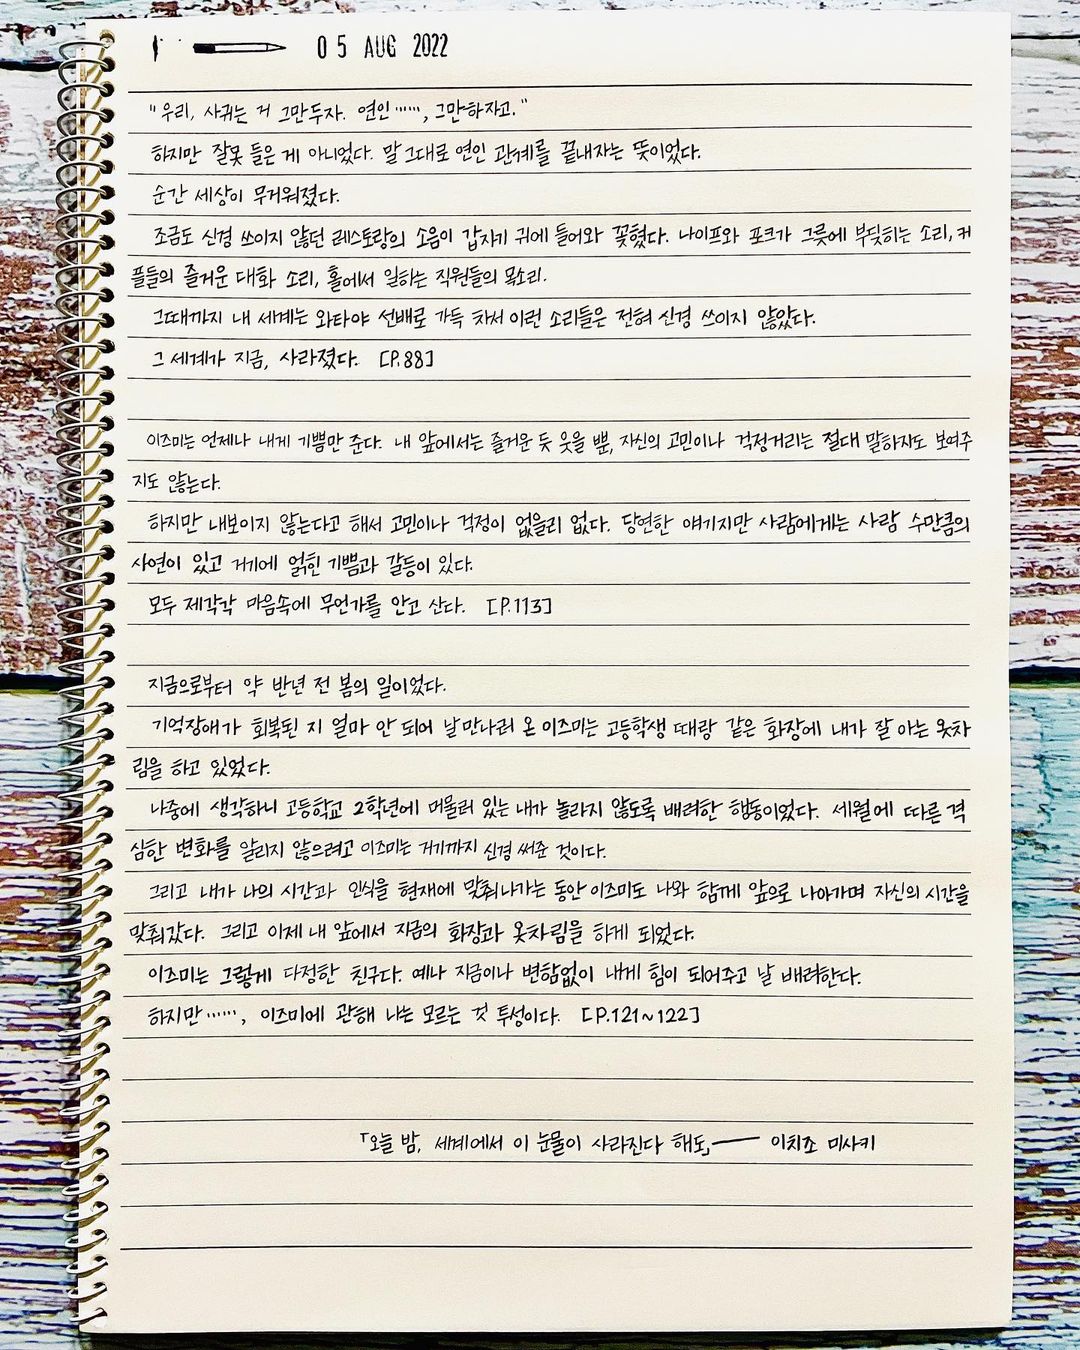 05 AUG 2022
"우리, 사귀는 거 그만두자. 연인……, 그만하자고."
하지만 잘못 들은 게 아니었다. 말 그대로 연인 관계를 끝내자는 뜻이었다.
순간 세상이 무거워졌다.
조금도 신경 쓰이지 않던 레스토랑의 소음이 갑자기 귀에 들어와 꽂혔다. 나이프와 포크가 그릇에 부딪히는 소리, 커
플들의 즐거운 대화 소리, 홀에서 일하는 직원들의 목소리.
그때까지 내 세계는 와타야 선배로 가득 차서 이런 소리들은 전혀 신경 쓰이지 않았다.
그 세계가 지금, 사라졌다. [P.88]
이즈미는 언제나 내게 기쁨만 준다. 내 앞에서는 즐거운 듯 웃을 뿐, 자신의 고민이나 걱정거리는 절대 말하지도 보여주
지도 않는다.
하지만 내보이지 않는다고 해서 고민이나 걱정이 없을리 없다. 당연한 얘기지만 사람에게는 사람 수만큼의
사연이 있고 거기에 얽힌 기쁨과 갈등이 있다.
모두 제각각 마음속에 무언가를 안고 산다. [P.113]
지금으로부터 약 반년 전 봄의 일이었다.
기억장애가 회복된 지 얼마 안 되어 날 만나러 온 이즈미는 고등학생 때랑 같은 화장에 내가 잘 아는 옷차
림을 하고 있었다.
나중에 생각하니 고등학교 2학년에 머물러 있는 내가 놀라지 않도록 배려한 행동이었다. 세월에 따른 격
심한 변화를 알리지 않으려고 이즈미는 거기까지 신경 써준 것이다.
그리고 내가 나의 시간과 인식을 현재에 맞춰나가는 동안 이즈미도 나와 함께 앞으로 나아가며 자신의 시간을
맞춰갔다. 그리고 이제 내 앞에서 지금의 화장과 옷차림을 하게 되었다.
이즈미는 그렇게 다정한 친구다. 예나 지금이나 변함없이 내게 힘이 되어주고 날 배려한다.
하지만……, 이즈미에 관해 나는 모르는 것 투성이다. [P.121~122]
「오늘 밤, 세계에서 이 눈물이 사라진다 해도」── 이치조 미사키